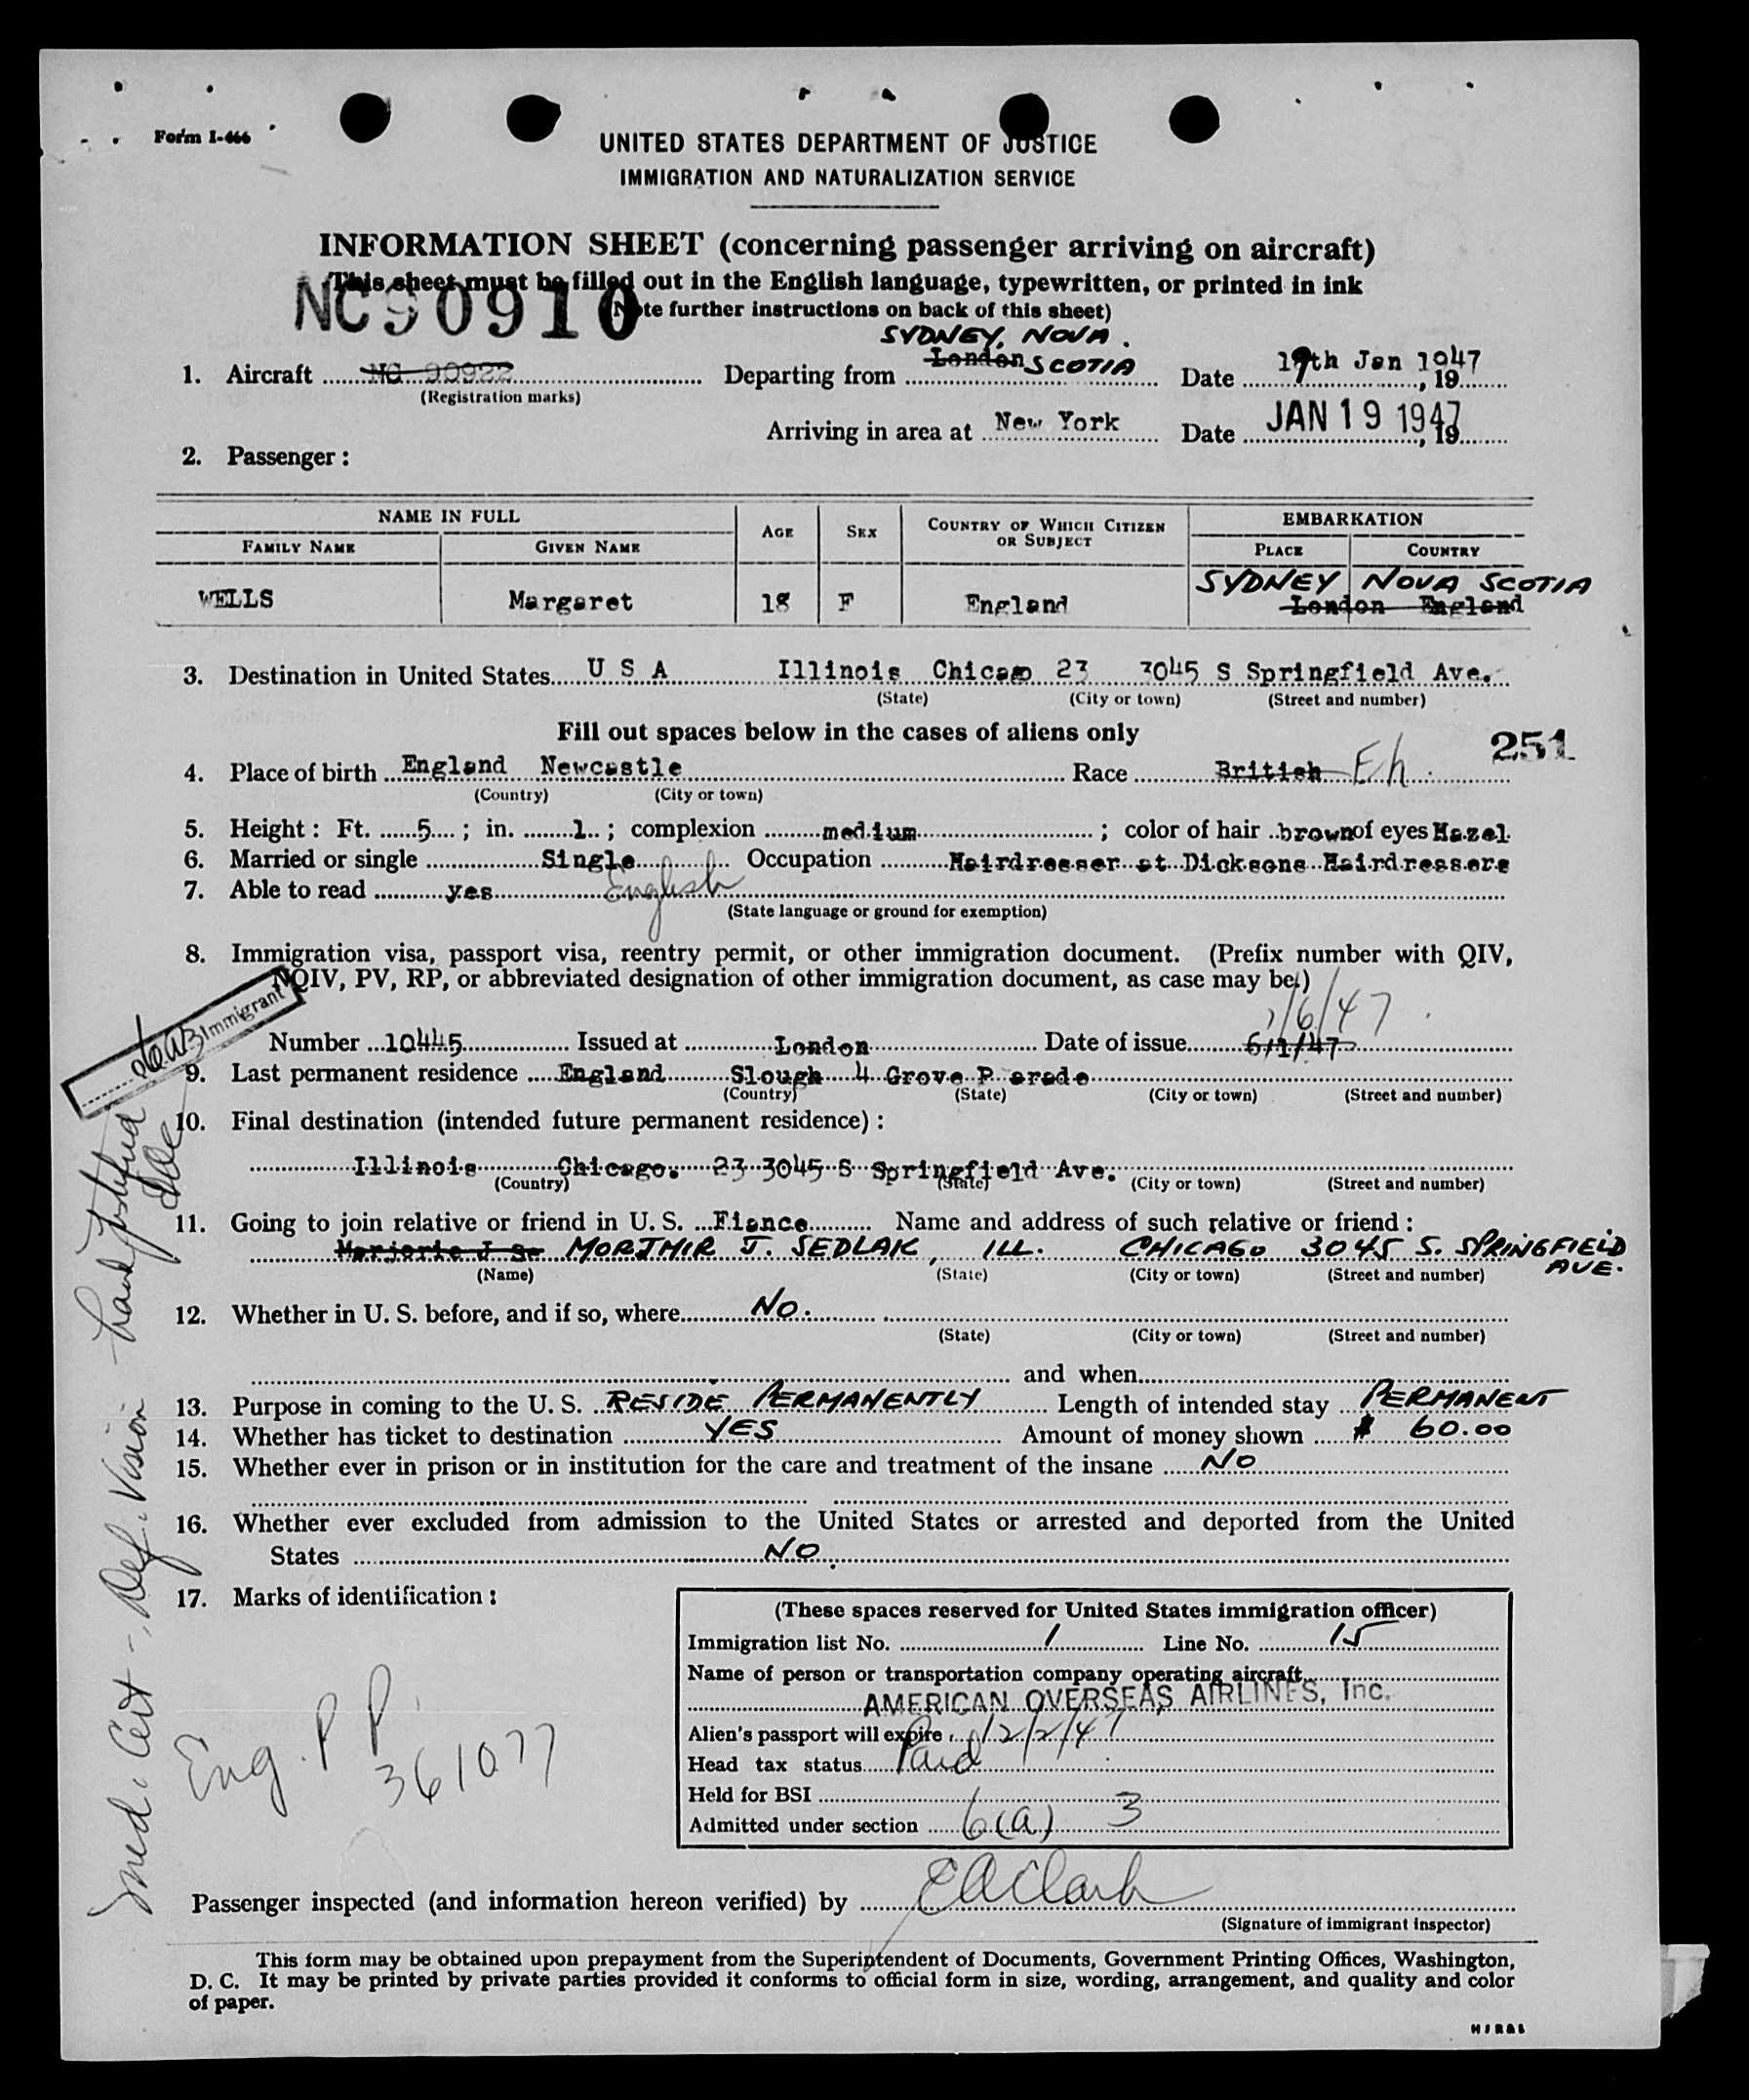 Form I-466
UNITED STATES DEPARTMENT OF JUSTICE
IMMIGRATION AND NATURALIZATION SERVICE
INFORMATION SHEET (concerning passenger arriving on aircraft)
This sheet must be filled out in the English language, typewritten, or printed in ink
(Note further instructions on back of this sheet)
NC90910
SYDNEY, NOVA
1. Aircraft NC 90922 Departing from London SCOTIA Date 19th Jan 1947, 19
(Registration marks)
Arriving in area at New York Date JAN 19 1947, 19
2. Passenger:
NAME IN FULL AGE SEX COUNTRY OF WHICH CITIZEN OR SUBJECT EMBARKATION
FAMILY NAME GIVEN NAME PLACE COUNTRY
SYDNEY NOVA SCOTIA
WELLS Margaret 18 F England London England
3. Destination in United States U S A Illinois Chicago 23 3045 S Springfield Ave.
(State) (City or town) (Street and number)
Fill out spaces below in the cases of aliens only
251
4. Place of birth England Newcastle Race British Eh.
(Country) (City or town)
5. Height: Ft. 5; in. 1; complexion medium; color of hair brown of eyes Hazel
6. Married or single Single Occupation Hairdresser at Dicksons Hairdressers
7. Able to read yes English
(State language or ground for exemption)
8. Immigration visa, passport visa, reentry permit, or other immigration document. (Prefix number with QIV,
NQIV, PV, RP, or abbreviated designation of other immigration document, as case may be.)
Immigrant
1/6/47
Number 10445 Issued at London Date of issue 6/1/47
9. Last permanent residence England Slough 4 Grove P arade
(Country) (State) (City or town) (Street and number)
10. Final destination (intended future permanent residence):
Illinois Chicago. 23 3045 S Springfield Ave.
(Country) (State) (City or town) (Street and number)
11. Going to join relative or friend in U. S. Fiance Name and address of such relative or friend:
Marjorie J Se MORJMIR J. SEDLAK, ILL. CHICAGO 3045 S. SPRINGFIELD AVE.
(Name) (State) (City or town) (Street and number)
12. Whether in U. S. before, and if so, where No.
(State) (City or town) (Street and number)
and when
13. Purpose in coming to the U. S. RESIDE PERMANENTLY Length of intended stay PERMANENT
14. Whether has ticket to destination YES Amount of money shown $ 60.00
15. Whether ever in prison or in institution for the care and treatment of the insane NO
16. Whether ever excluded from admission to the United States or arrested and deported from the United
States NO
17. Marks of identification:
Eng. P P.
361077
Med. Cert -, Def. Vision
(These spaces reserved for United States immigration officer)
Immigration list No. 1 Line No. 15
Name of person or transportation company operating aircraft
AMERICAN OVERSEAS AIRLINES, Inc.
Alien's passport will expire 12/2/47
Head tax status Paid
Held for BSI
Admitted under section 6(a) 3
Passenger inspected (and information hereon verified) by E A Clark
(Signature of immigrant inspector)
This form may be obtained upon prepayment from the Superintendent of Documents, Government Printing Offices, Washington,
D. C. It may be printed by private parties provided it conforms to official form in size, wording, arrangement, and quality and color
of paper.